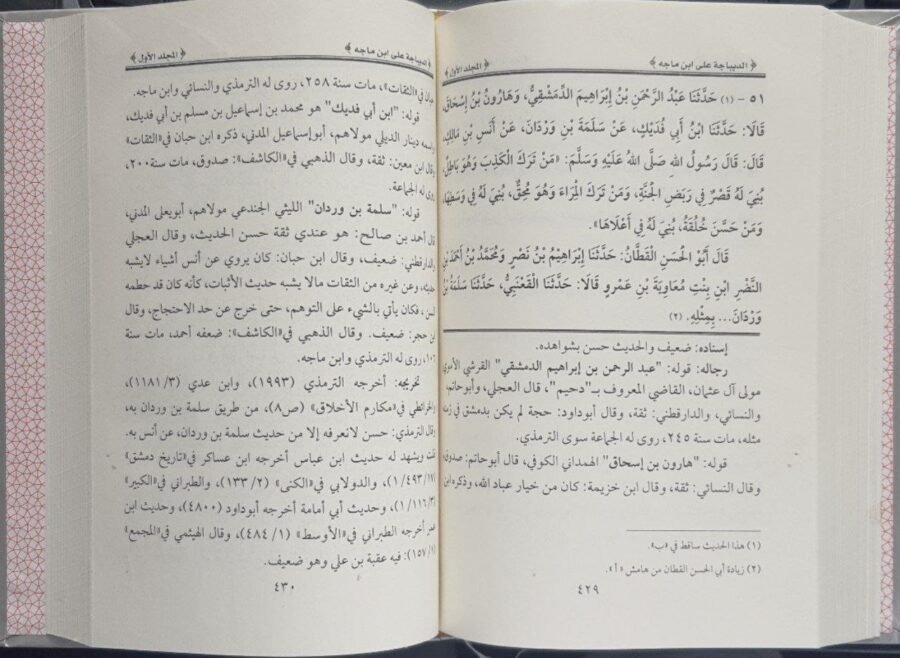 ﴿ الديباجة على ابن ماجه ﴾ ﴿ المجلد الأول ﴾
٥١ - (١) حَدَّثَنَا عَبْدُ الرَّحْمَنِ بْنُ إِبْرَاهِيمَ الدِّمَشْقِيُّ، وَهَارُونُ بْنُ إِسْحَاقَ،
قَالَا: حَدَّثَنَا ابْنُ أَبِي فُدَيْكٍ، عَنْ سَلَمَةَ بْنِ وَرْدَانَ، عَنْ أَنَسِ بْنِ مَالِكٍ،
قَالَ: قَالَ رَسُولُ اللهِ صَلَّى اللهُ عَلَيْهِ وَسَلَّمَ: «مَنْ تَرَكَ الْكَذِبَ وَهُوَ بَاطِلٌ،
بُنِيَ لَهُ قَصْرٌ فِي رَبَضِ الْجَنَّةِ، وَمَنْ تَرَكَ الْمِرَاءَ وَهُوَ مُحِقٌّ، بُنِيَ لَهُ فِي وَسَطِهَا،
وَمَنْ حَسَّنَ خُلُقَهُ، بُنِيَ لَهُ فِي أَعْلَاهَا».
قَالَ أَبُو الْحَسَنِ الْقَطَّانُ: حَدَّثَنَا إِبْرَاهِيمُ بْنُ نَصْرٍ وَمُحَمَّدُ بْنُ أَحْمَدَ بْنِ
النَّضْرِ ابْنِ بِنْتِ مُعَاوِيَةَ بْنِ عَمْرٍو قَالَا: حَدَّثَنَا الْقَعْنَبِيُّ، حَدَّثَنَا سَلَمَةُ بْنُ
وَرْدَانَ... بِمِثْلِهِ. (٢)
إسناده: ضعيف والحديث حسن بشواهده.
رجاله: قوله: "عبد الرحمن بن إبراهيم الدمشقي" القرشي الأموي
مولى آل عثمان، القاضي المعروف بـ"دحيم"، قال العجلي، وأبوحاتم،
والنسائي، والدارقطني: ثقة، وقال أبوداود: حجة لم يكن بدمشق في زمنه
مثله، مات سنة ٢٤٥، روى له الجماعة سوى الترمذي.
قوله: "هارون بن إسحاق" الهمداني الكوفي، قال أبوحاتم: صدوق،
وقال النسائي: ثقة، وقال ابن خزيمة: كان من خيار عباد الله، وذكره ابن
(١) هذا الحديث ساقط في «ب».
(٢) زيادة أبي الحسن القطان من هامش «أ».
٤٢٩
﴿ الديباجة على ابن ماجه ﴾ ﴿ المجلد الأول ﴾
حبان في «الثقات»، مات سنة ٢٥٨، روى له الترمذي والنسائي وابن ماجه.
قوله: "ابن أبي فديك" هو محمد بن إسماعيل بن مسلم بن أبي فديك،
واسمه دينار الديلي مولاهم، أبوإسماعيل المدني، ذكره ابن حبان في «الثقات»
وقال ابن معين: ثقة، وقال الذهبي في «الكاشف»: صدوق، مات سنة ٢٠٠،
روى له الجماعة.
قوله: "سلمة بن وردان" الليثي الجندعي مولاهم، أبويعلى المدني،
قال أحمد بن صالح: هو عندي ثقة حسن الحديث، وقال العجلي
والدارقطني: ضعيف، وقال ابن حبان: كان يروي عن أنس أشياء لايشبه
حديثه، وعن غيره من الثقات مالا يشبه حديث الأثبات، كأنه كان قد حطمه
السن، فكان يأتي بالشيء على التوهم، حتى خرج عن حد الاحتجاج، وقال
ابن حجر: ضعيف. وقال الذهبي في «الكاشف»: ضعفه أحمد، مات سنة
١٥٦، روى له الترمذي وابن ماجه.
تخريجه: أخرجه الترمذي (١٩٩٣)، وابن عدي (٣/ ١١٨١)،
والخرائطي في «مكارم الأخلاق» (ص٨)، من طريق سلمة بن وردان به،
وقال الترمذي: حسن لانعرفه إلا من حديث سلمة بن وردان، عن أنس به.
قلت ويشهد له حديث ابن عباس أخرجه ابن عساكر في «تاريخ دمشق»
(١٧/ ٤٩٣/ ١)، والدولابي في «الكنى» (٢/ ١٣٣)، والطبراني في «الكبير»
(٣/ ١١٦/ ١)، وحديث أبي أمامة أخرجه أبوداود (٤٨٠٠)، وحديث ابن
عمر أخرجه الطبراني في «الأوسط» (١/ ٤٨٤)، وقال الهيثمي في «المجمع»
(١/ ١٥٧): فيه عقبة بن علي وهو ضعيف.
٤٣٠